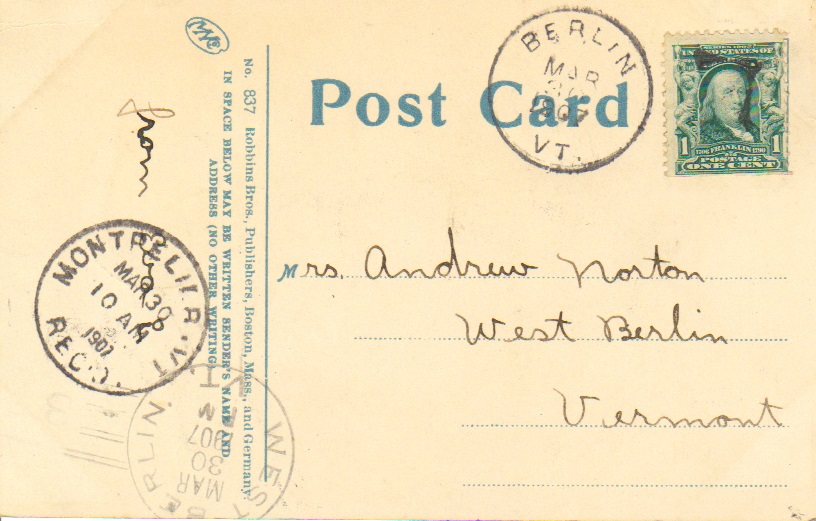 Post Card
BERLIN
MAR
30
1907
VT.
SERIES 1902
UNITED STATES OF
1706 FRANKLIN 1790
POSTAGE
1 ONE CENT 1
No. 837 Robbins Bros., Publishers, Boston, Mass., and Germany.
IN SPACE BELOW MAY BE WRITTEN SENDER'S NAME AND
ADDRESS (NO OTHER WRITING)
from
MONTPELIER. VT.
MAR 30
10 AM
1907
REC'D.
Mrs. Andrew Norton
West Berlin
Vermont
WEST BERLIN.
MAR
30
1907